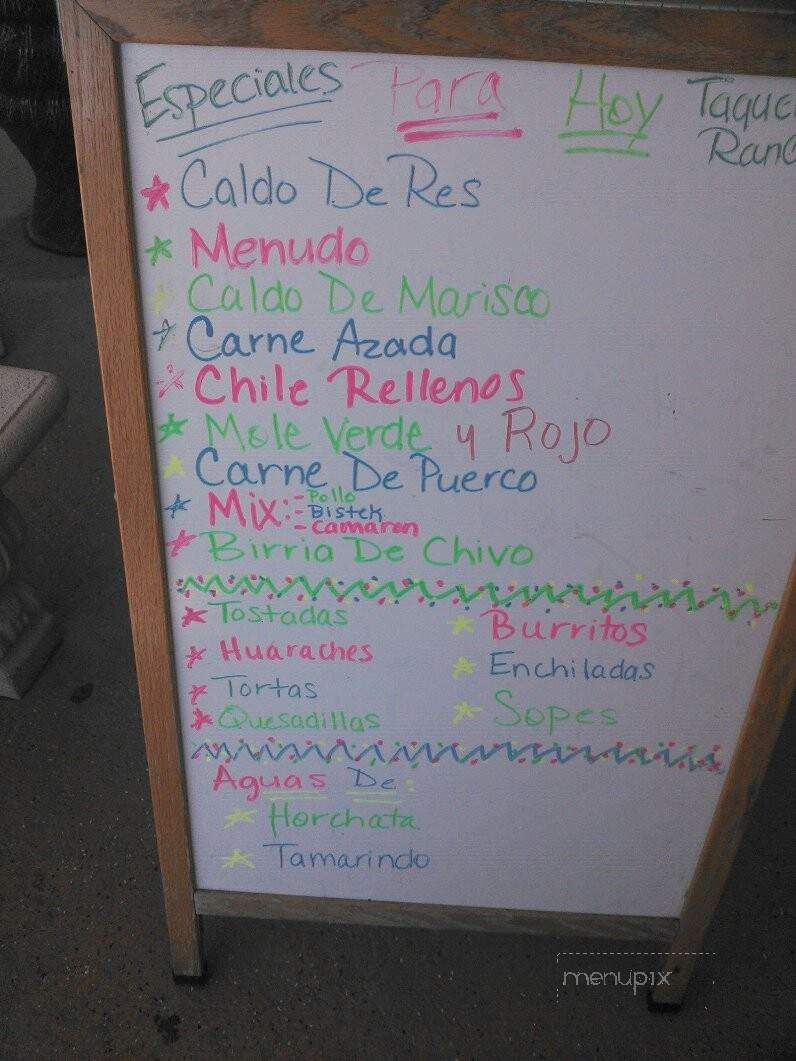 Especiales Para Hoy
Caldo De Res
Menudo
Caldo De Marisco
Carne Azada
Chile Rellenos
Mole Verde y Rojo
Carne De Puerco
Mix:- Pollo
- Bistek
- Camaron
Birria De Chivo
Tostadas
Huaraches
Tortas
Quesadillas
Burritos
Enchiladas
Sopes
Aguas De:
Horchata
Tamarindo
menupix